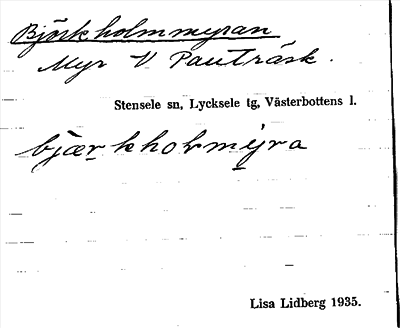 Björkholmmyran
Myr V Pauträsk.
Stensele sn, Lycksele tg, Västerbottens l.
bjærkholmmyra
Lisa Lidberg 1935.